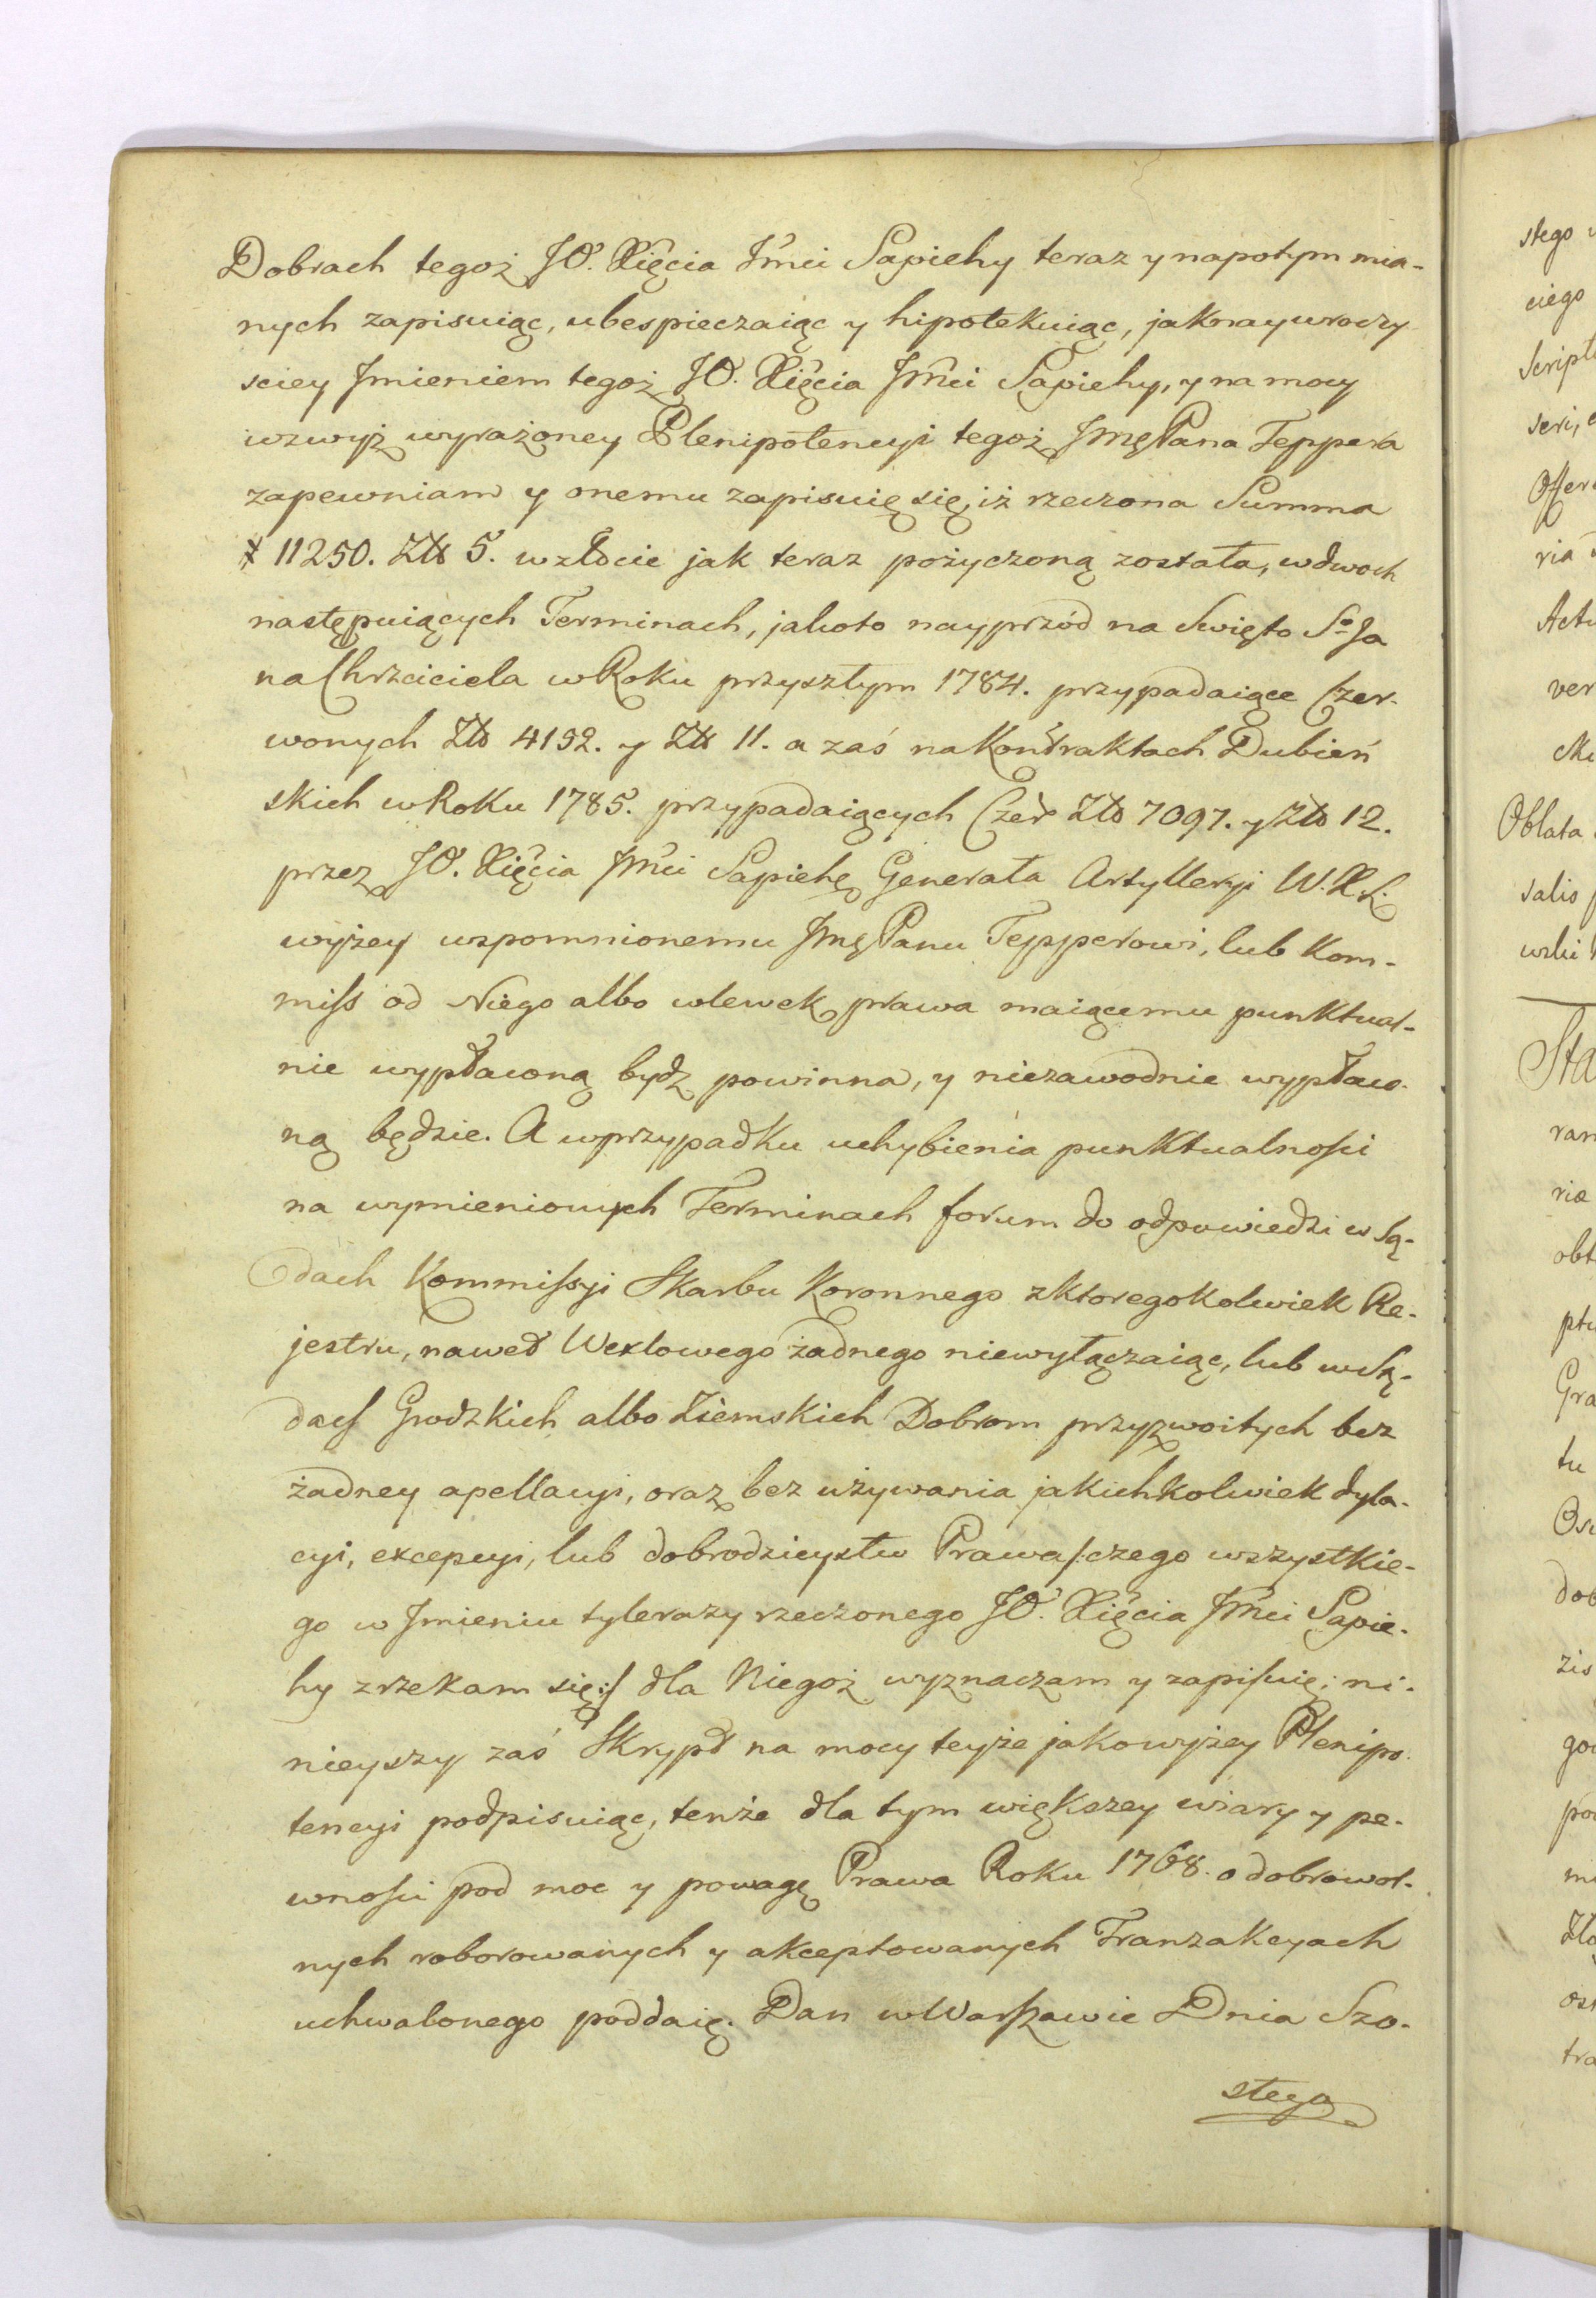 Dobrach tegoż JO. Xięcia Jmci Sapiehy teraz y napotym mia-
nych zapisuiąc, ubespieczaiąc y hipotekuiąc, jaknayuroczy
sciey Jmieniem tegoż JO. Xięcia Jmci Sapiehy, y na mocy
wzwyż wyrażoney Plenipotencyi tegoż Jmę Pana Teppera
zapewniam y onemu zapisuię się, iż rzeczona Summa
# 11250. Złł 5. wzłocie jak teraz pożyczoną została, wdwoch
następuiących Terminach, jakoto nayprzód na Swięto So Ja
na Chrzciciela w Roku przyszłym 1784. przypadaiące Czer-
wonych Złł 4152. y Złł 11. a zaś na Kontraktach Dubień
skich w Roku 1785. przypadaiących Czer Złł 7097. y Złł 12.
przez JO. Xięcia Jmci Sapiehę Generała Artylleryi W.X.L.
wyżey wspomnionemu Jmę Panu Tepperowi, lub Kom-
miss od Niego albo wlewek prawa maiącemu punktual-
nie wypłaconą bydz powinna, y niezawodnie wypłaco-
ną będzie. A wprzypadku uchybienia punktualności
na wymienionych Terminach forum do odpowiedzi w Są-
dach Kommissyi Skarbu Koronnego zktoregokolwiek Re-
jestru, nawet Wexlowego żadnego niewyłączaiąc, lub wSą-
dach Grodzkich albo Ziemskich Dobrom przyzwoitych bez
żadney apellacyi, oraz bez używania jakichkolwiek dyla-
cyi, excepcyi, lub dobrodzieystw Prawa /:czego wszystkie-
go w Jmieniu tylerazy rzeczonego JO. Xięcia Jmci Sapie-
hy zrzekam się:/ dla Niegoż wyznaczam y zapisuię; ni-
nieyszy zaś Skrypt na mocy teyże jakowyżey Plenipo-
tencyi podpisuiąc, tenże dla tym większey wiary y pe-
wności pod moc y powagę Prawa Roku 1768. o dobrowol-
nych roborowanych y akceptowanych Tranzakcyach
uchwalonego poddaię. Dan w Warszawie Dnia Szo-
stego
stego
ciego
Script
seri,
ria
ver
Oblata
salis
Sta
ran
obt
Gra
tu
dob
zis
tra